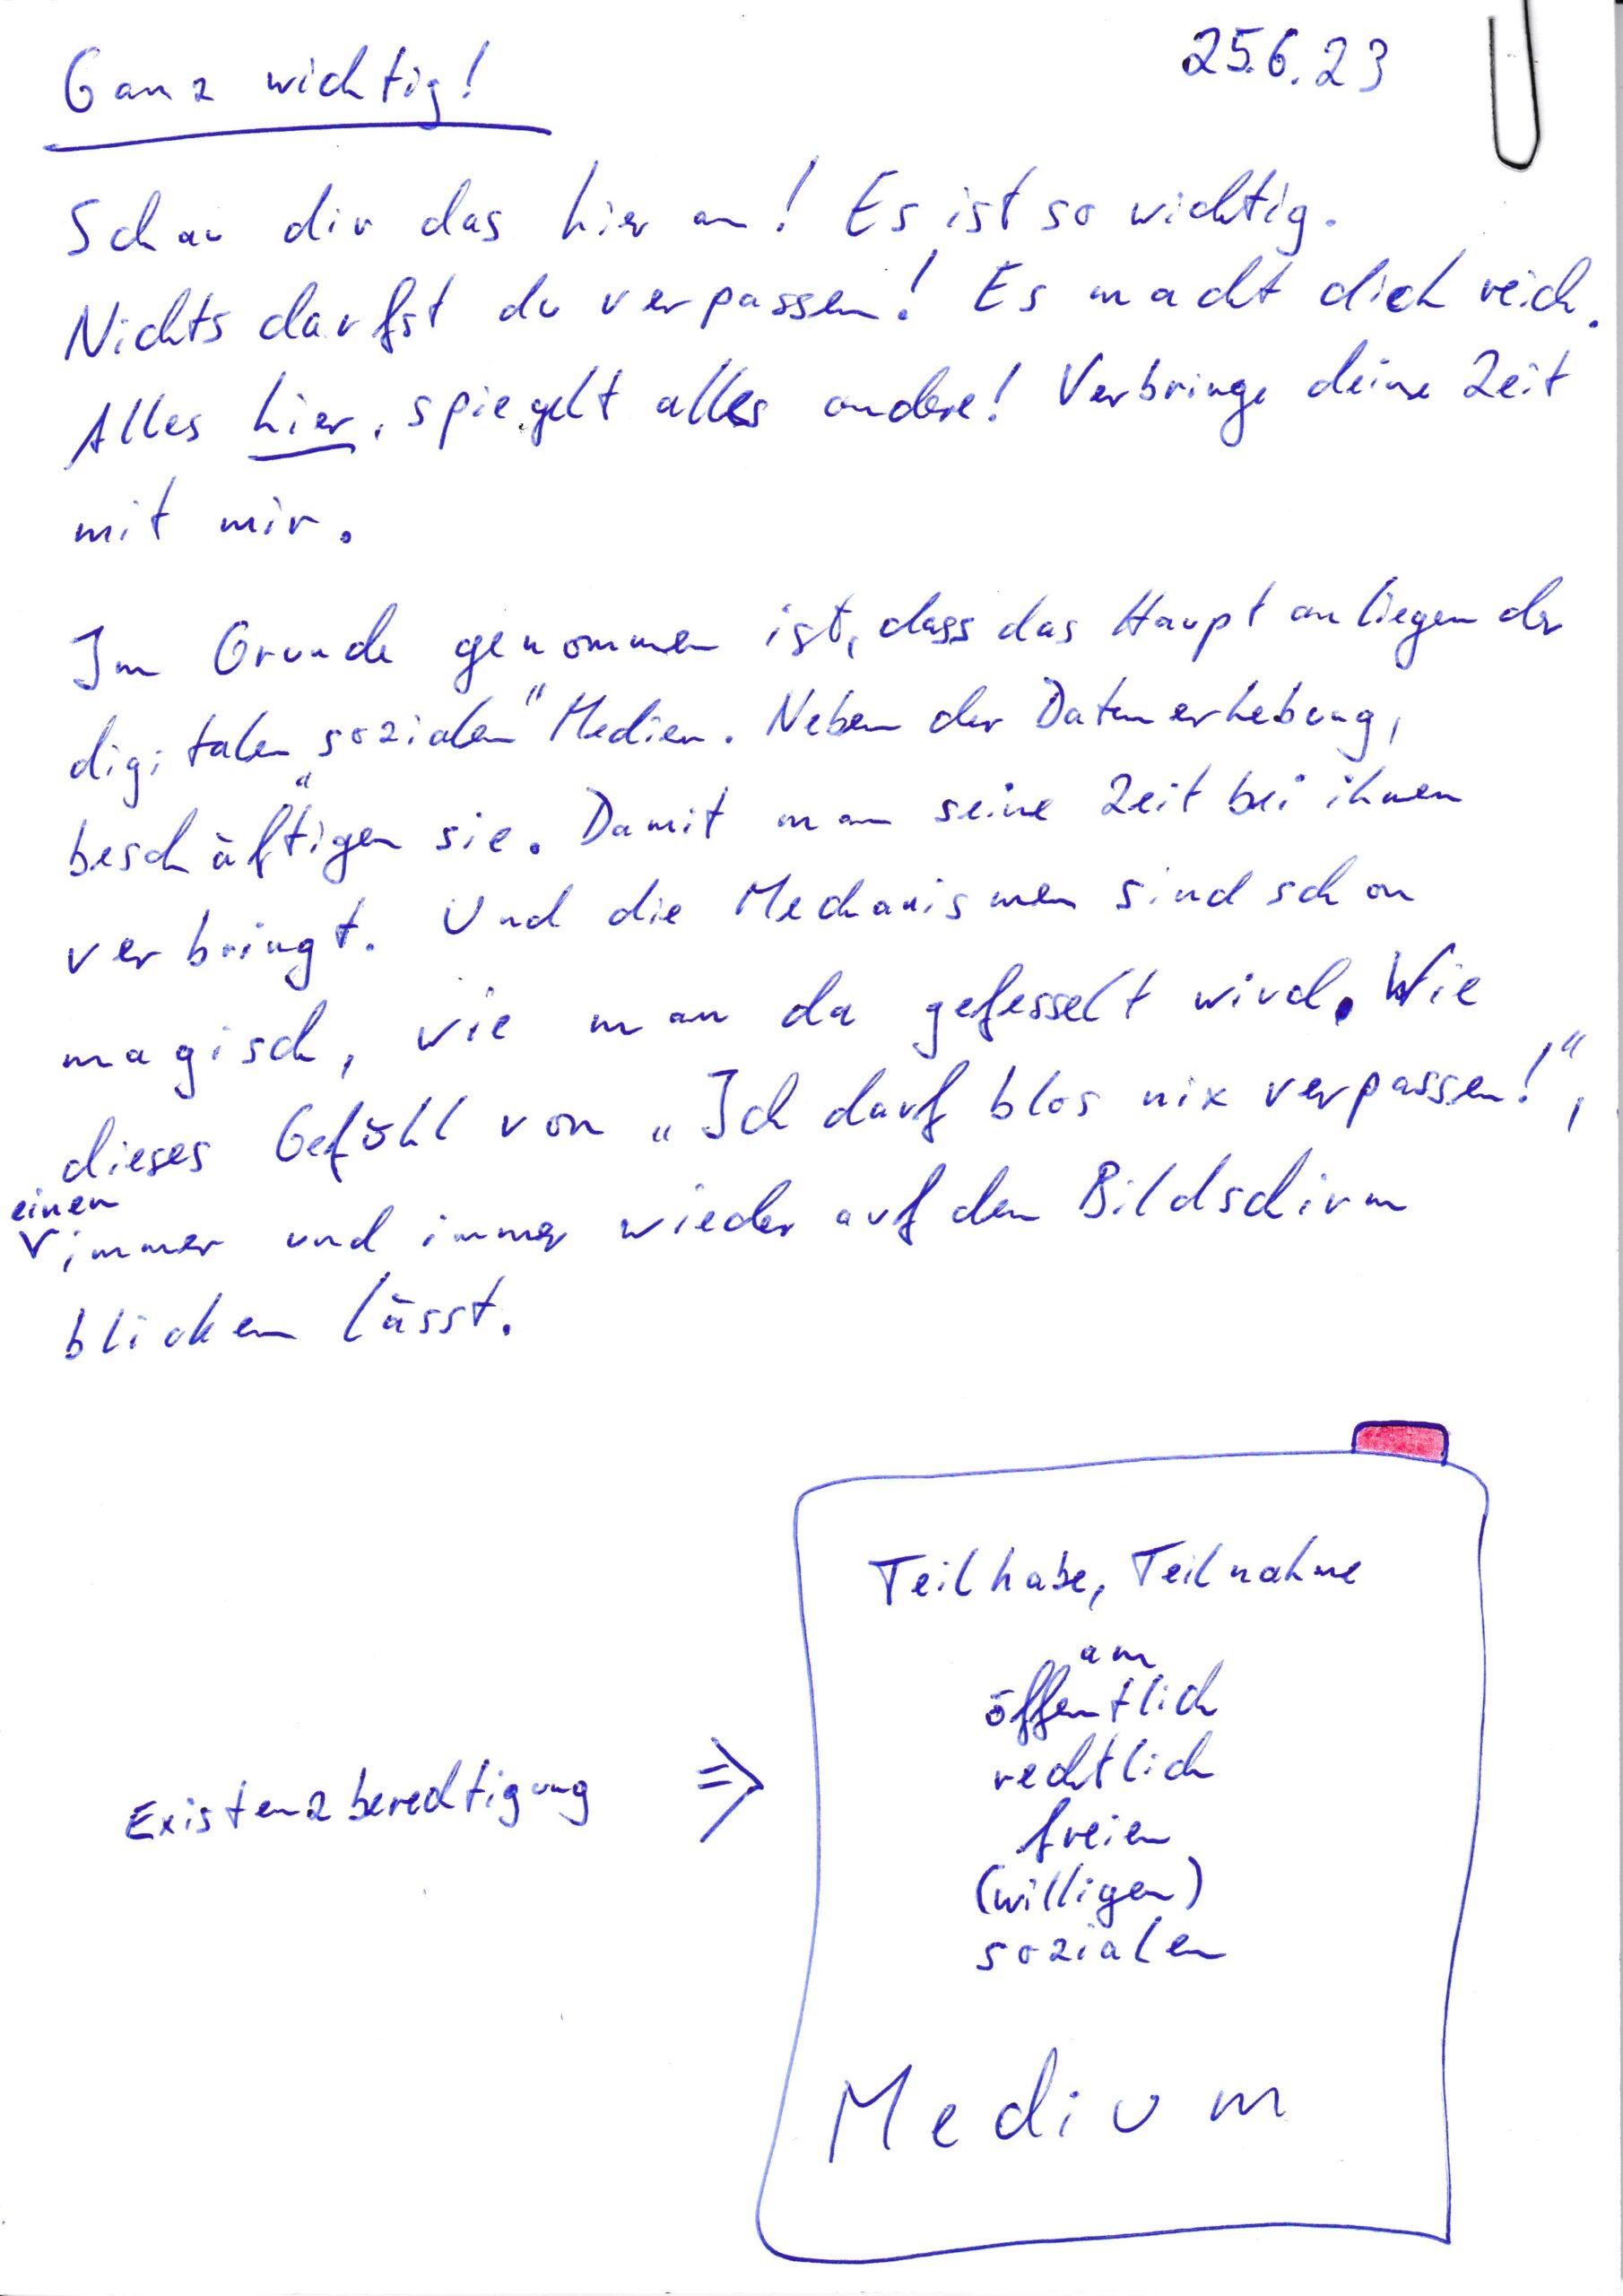 25.6.23
Ganz wichtig!
Schau dir das hier an! Es ist so wichtig.
Nichts darfst du verpassen! Es macht dich reich.
Alles hier, spiegelt alles andere! Verbringe deine Zeit
mit mir.
Im Grunde genommen ist, dass das Hauptanliegen der
digitalen „sozialen“ Medien. Neben der Datenerhebung,
beschäftigen sie. Damit man seine Zeit bei ihnen
verbringt. Und die Mechanismen sind schon
magisch, wie man da gefesselt wird. Wie
dieses Gefühl von „Ich darf blos nix verpassen!“,
einen
immer und immer wieder auf den Bildschirm
blicken lässt.
Teilhabe, Teilnahme
am
öffentlich
rechtlich
freien
(willigen)
sozialen
Medium
Existenzberechtigung =>